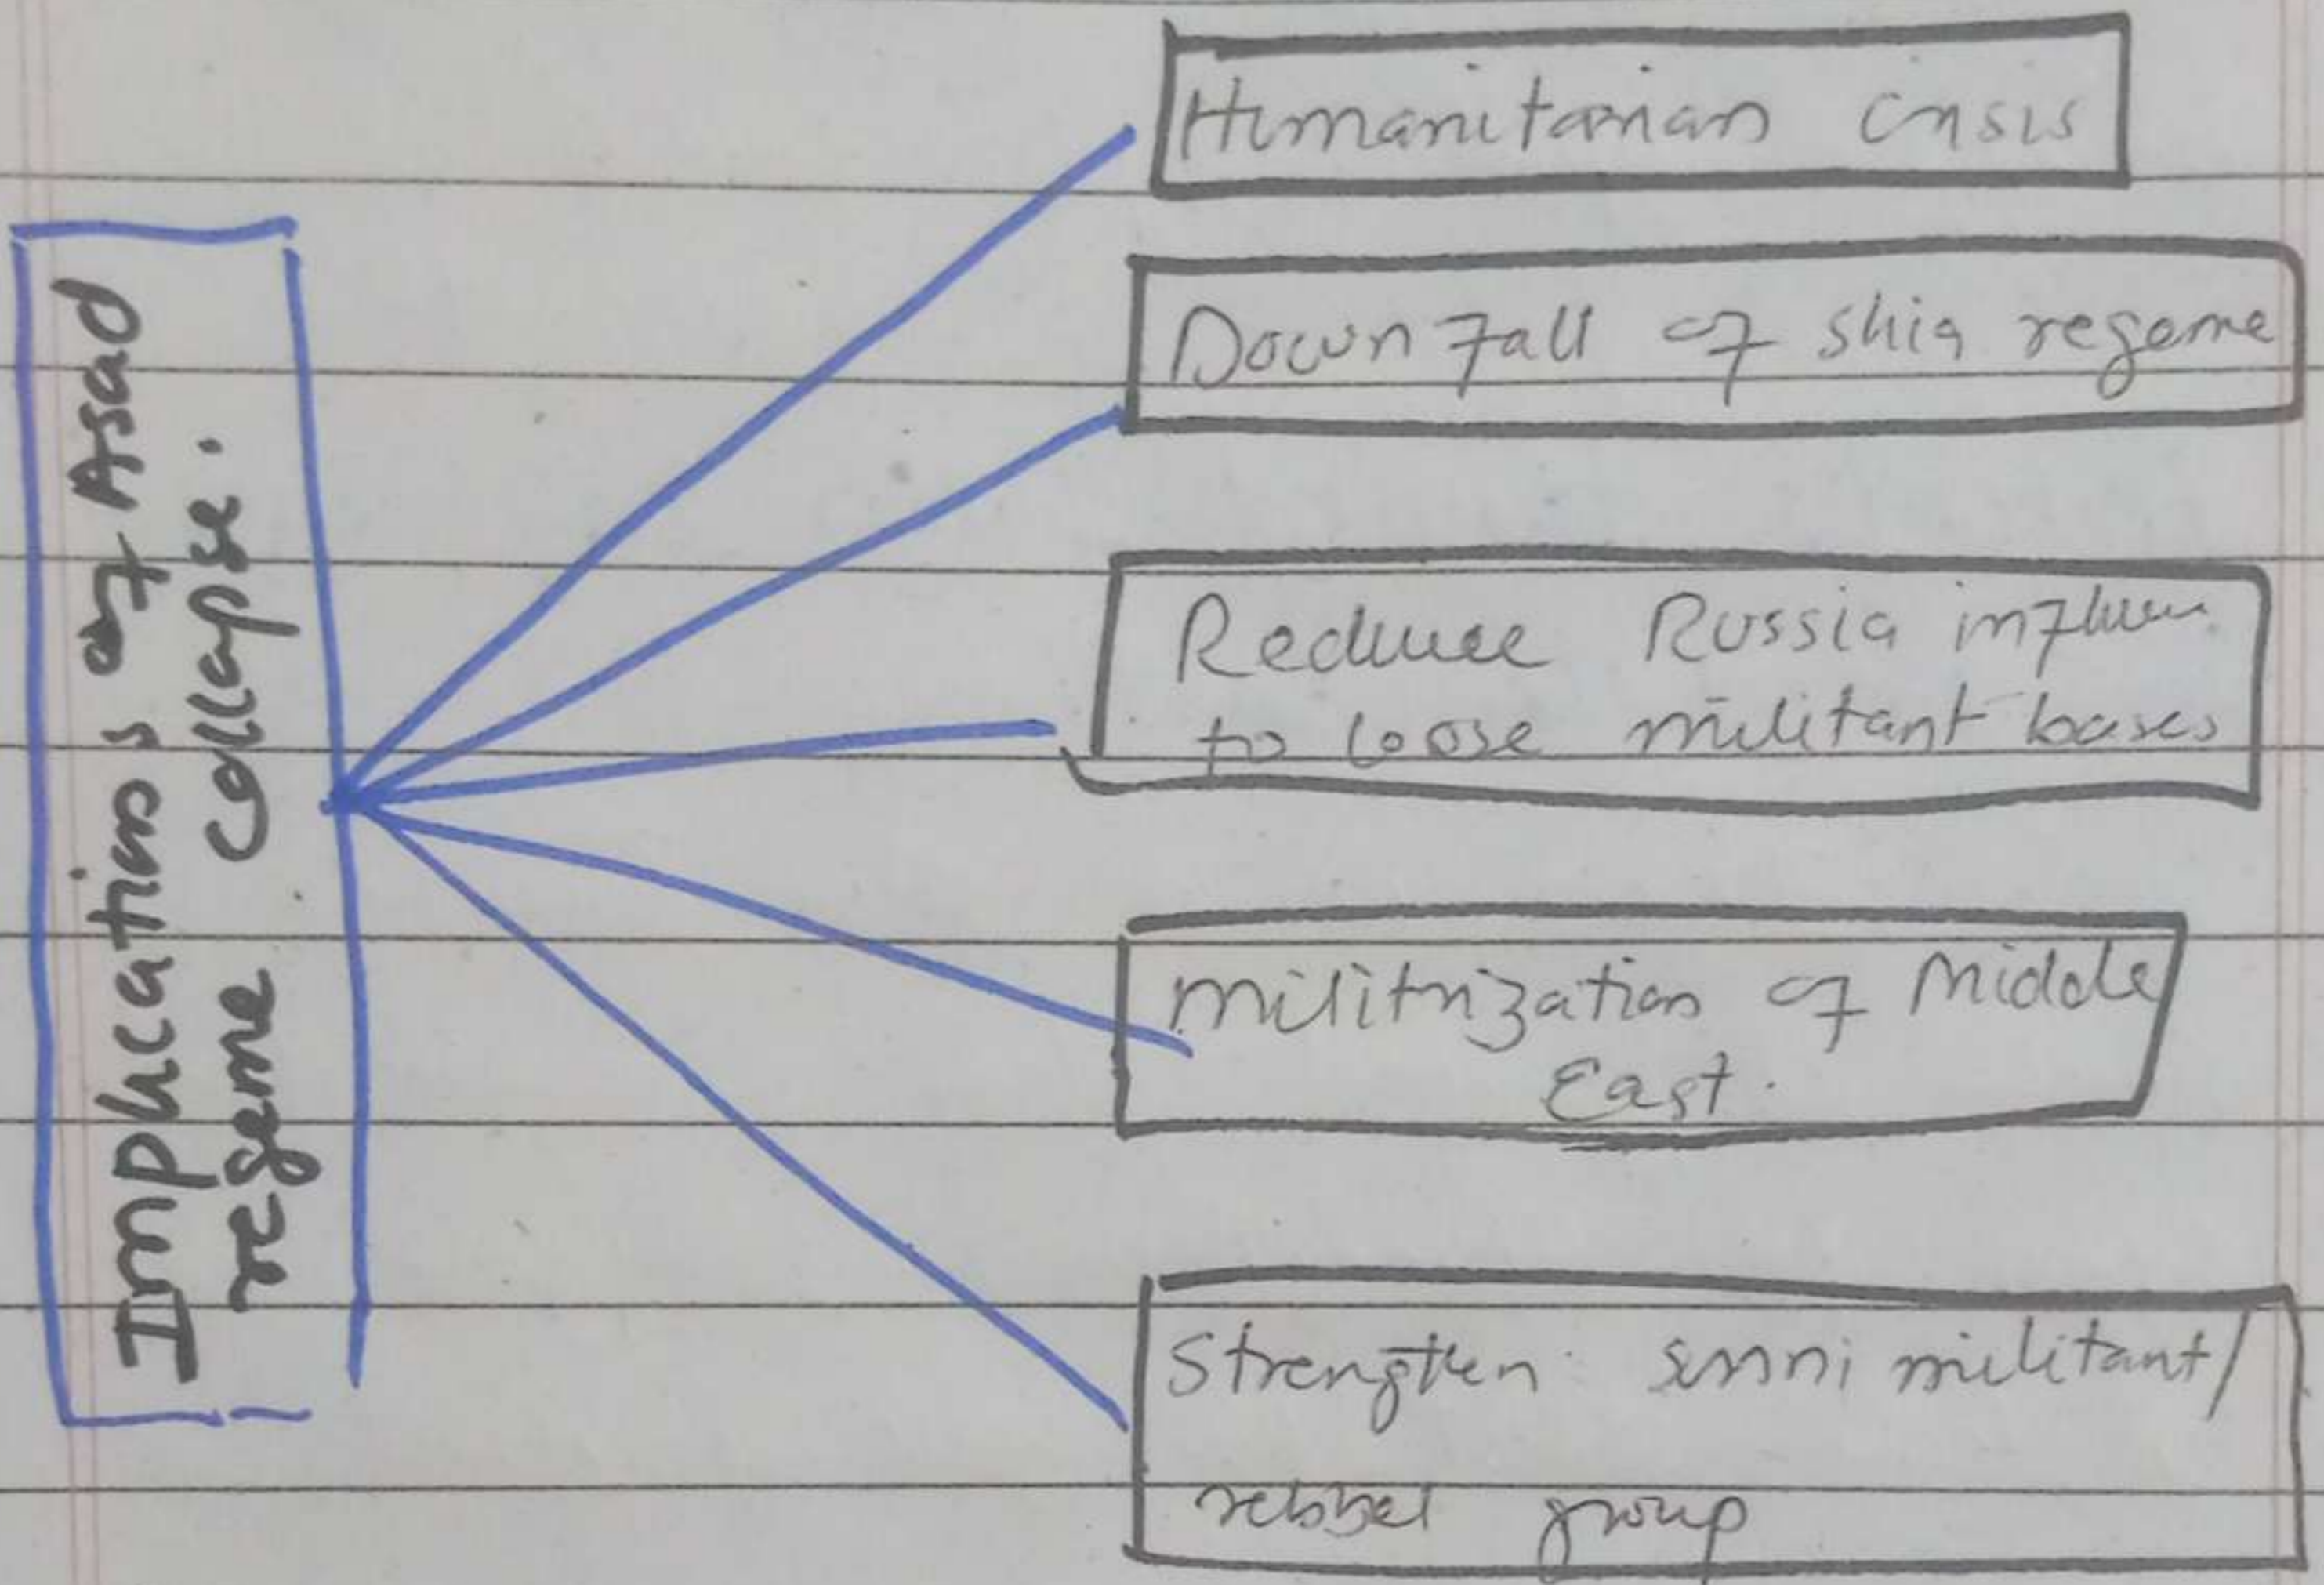 Implications of Asad
regeme collapse.
Humanitarian crisis
Downfall of shia regeme
Reduce Russia
to loose militant bases
Militrization of Middle
East.
Strengthen sunni militant/
rebbel group